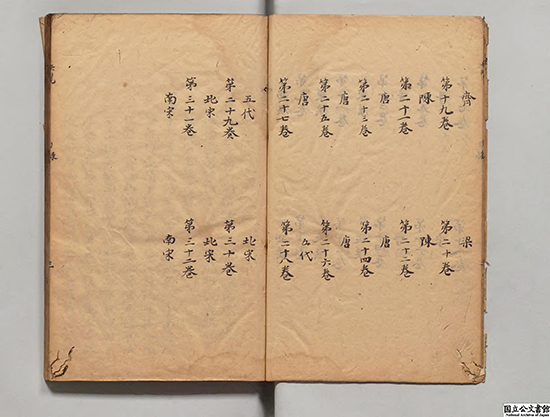 齊 梁
第十九卷 第二十卷
陳 陳
第二十一卷 第二十二卷
唐 唐
第二十三卷 第二十四卷
唐 唐
第二十五卷 第二十六卷
唐 五代
第二十七卷 第二十八卷
五代 北宋
第二十九卷 第三十卷
北宋 北宋
第三十一卷 第三十二卷
南宋 南宋
国立公文書館
National Archives of Japan